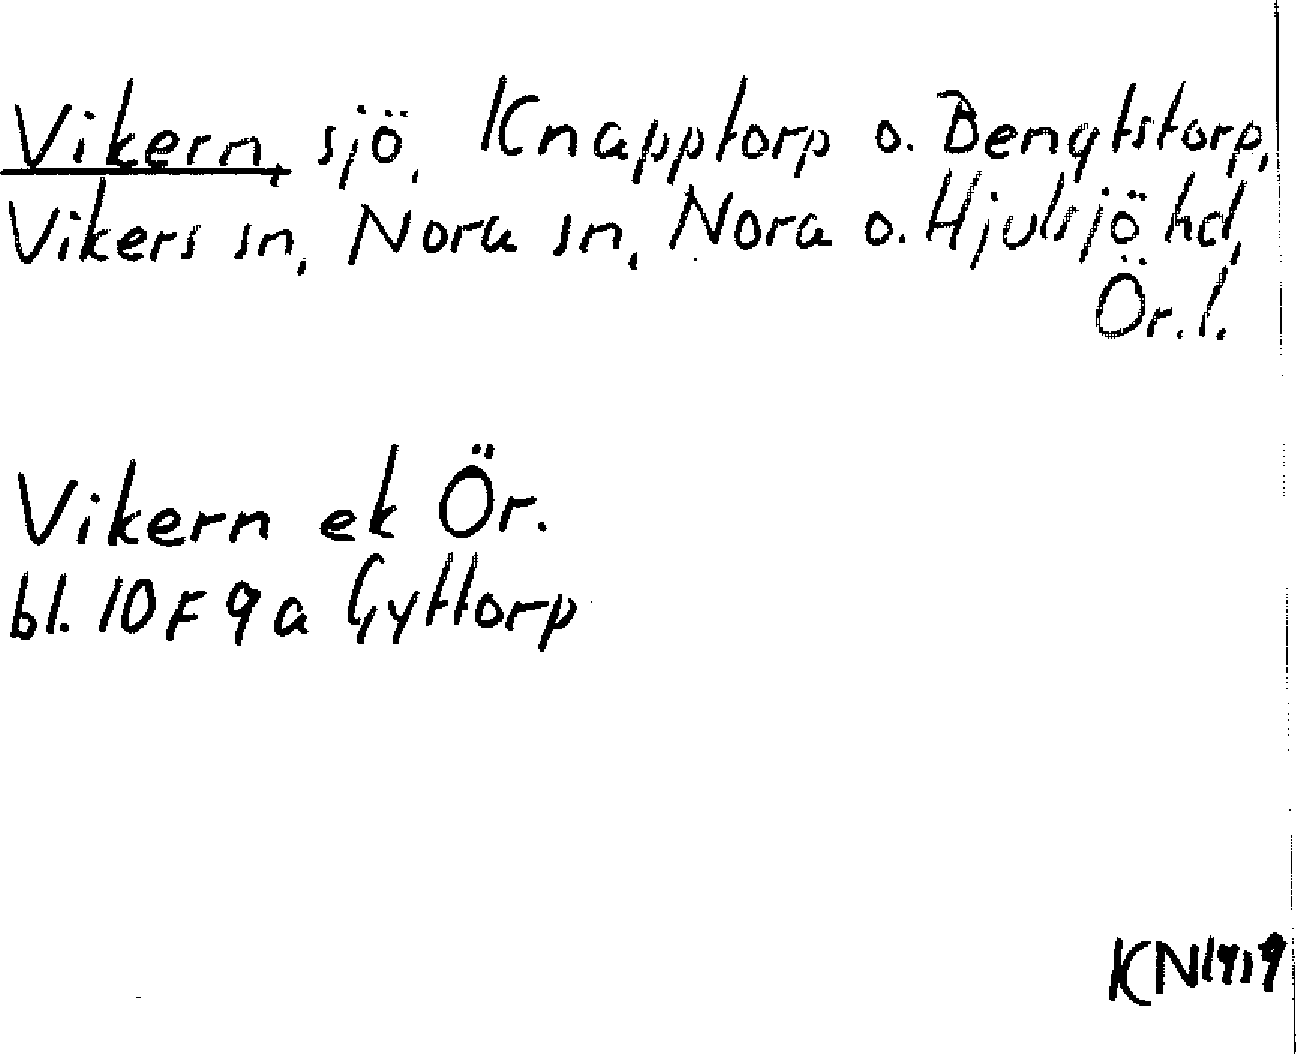 Vikern, sjö, Knapptorp o. Bengtstorp,
Vikers sn, Nora sn, Nora o. Hjulsjö hd,
Ör. l.
Vikern ek Ör.
bl. 10 F 9 a Gyttorp
KN1919